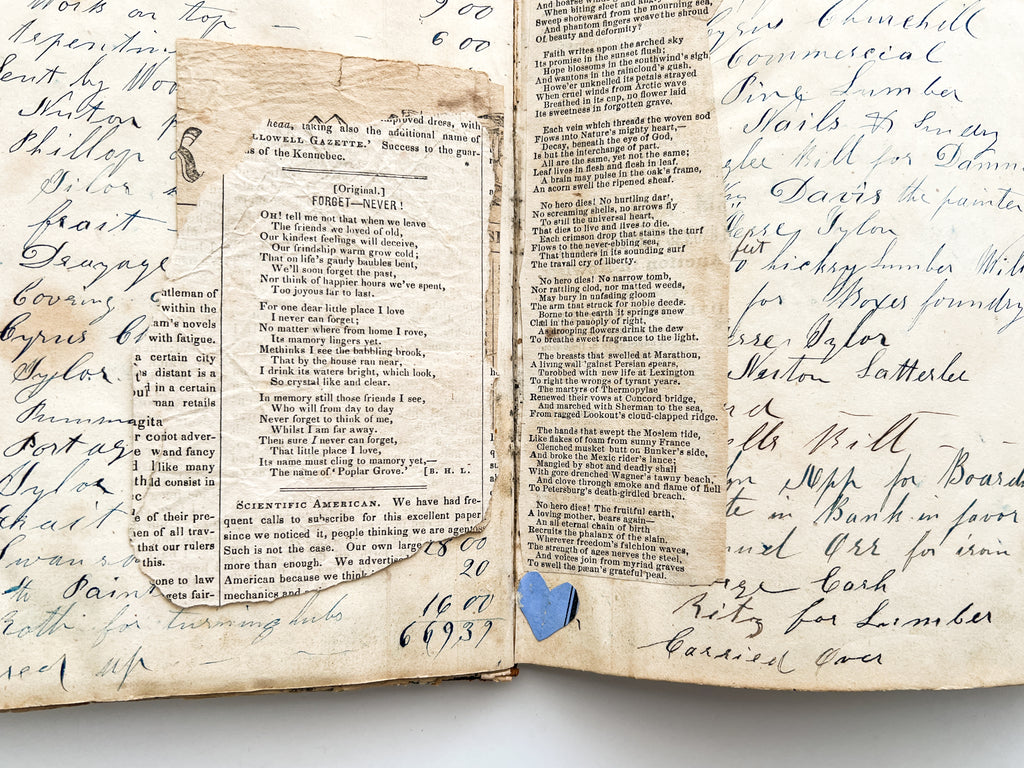 Work on top 9 00
6 00
Sent by
Phillop
Tilor
frait
Drayage
Covering
Cyrus
Tylor.
Portag
Tylor
Frait
18 00
Paint 20
16 00
for turning hubs
669 39
up
mproved dress, with
head, taking also the additional name of
LLOWELL GAZETTE.' Success to the guar-
s of the Kennebec.
[Original.]
FORGET—NEVER!
OH! tell me not that when we leave
The friends we loved of old,
Our kindest feelings will deceive,
Our friendship warm grow cold;
That on life's gaudy baubles bent,
We'll soon forget the past,
Nor think of happier hours we've spent,
Too joyous far to last.
For one dear little place I love
I never can forget;
No matter where from home I rove,
Its mamory lingers yet.
Methinks I see the babbling brook,
That by the house ran near,
I drink its waters bright, which look,
So crystal like and clear.
In memory still those friends I see,
Who will from day to day
Never forget to think of me,
Whilst I am far away.
Then sure I never can forget,
That little place I love,
Its name must cling to mamory yet,—
The name of 'Poplar Grove.' [S. H. L.
SCIENTIFIC AMERICAN. We have had fre-
quent calls to subscribe for this excellent paper
since we noticed it, people thinking we are agents
Such is not the case. Our own large
more than enough. We advertise
American because we think
mechanics and
atleman of
within the
am's novels
with fatigue.
a certain city
s distant is a
d in a certain
man retails
agita
r coriot adver-
e w and fancy
l like many
ld consist in
e of their pre-
en of all trav-
that our rulers
this.
one to law
gets fair-
And hoarse winds
When biting sleet and ang
Sweep shoreward from the mourning sea,
And phantom fingers weave the shroud
Of beauty and deformity?
Faith writes upon the arched sky
Its promise in the sunset flush;
Hope blossoms in the southwind's sigh
And wantons in the raincloud's gush.
Howe'er unknelled its petals strayed
When cruel winds from Arctic wave
Breathed in its cup, no flower laid
Its sweetness in forgotten grave.
Each vein which threads the woven sod
Flows into Nature's mighty heart,—
Decay, beneath the eye of God,
Is but the interchange of part.
All are the same, yet not the same;
Leaf lives in flesh and flesh in leaf.
A brain may pulse in the oak's frame,
An acorn swell the ripened sheaf.
No hero dies! No hurtling dar',
No screaming shells, no arrows fly
To still the universal heart,
That dies to live and lives to die.
Each crimson drop that stains the turf
Flows to the never-ebbing sea,
That thunders in its sounding surf
The travail cry of liberty.
No hero dies! No narrow tomb,
Nor rattling clod, nor matted weeds,
May bury in unfading gloom
The arm that struck for noble deeds.
Borne to the earth it springs anew
Clad in the panoply of right,
As drooping flowers drink the dew
To breathe sweet fragrance to the light.
The breasts that swelled at Marathon,
A living wall 'gainst Persian spears,
Torobbed with new life at Lexington
To right the wrongs of tyrant years.
The martyrs of Thermopylae
Renewed their vows at Concord bridge,
And marched with Sherman to the sea,
From ragged Lookout's cloud-clapped ridge.
The hands that swept the Moslem tide,
Like flakes of foam from sunny France
Clenched musket butt on Bunker's side,
And broke the Mexic rider's lance;
Mangled by shot and deadly shall
With gore drenched Wagner's tawny beach,
And clove through smoke and flame of hell
To Petersburg's death-girdled breach.
No hero dies! The fruitful earth,
A loving mother, bears again—
An all eternal chain of birth
Recruits the phalanx of the slain.
Wherever freedom's fulchion waves,
The strength of ages nerves the steel,
And voices join from myriad graves
To swell the pæan's grateful peal.
Cyrus Churchill
Commercial
Pine Lumber
Nails & Sundry
Bill for Damm
Davis the painter
Tylor
feet
hickry Lumber Mill
for Boxes foundry
Tylor
Neuton Satterlee
Bill
App for Boards
in Bank in favor
Orr for iron
Cash
for Lumber
Carried Over